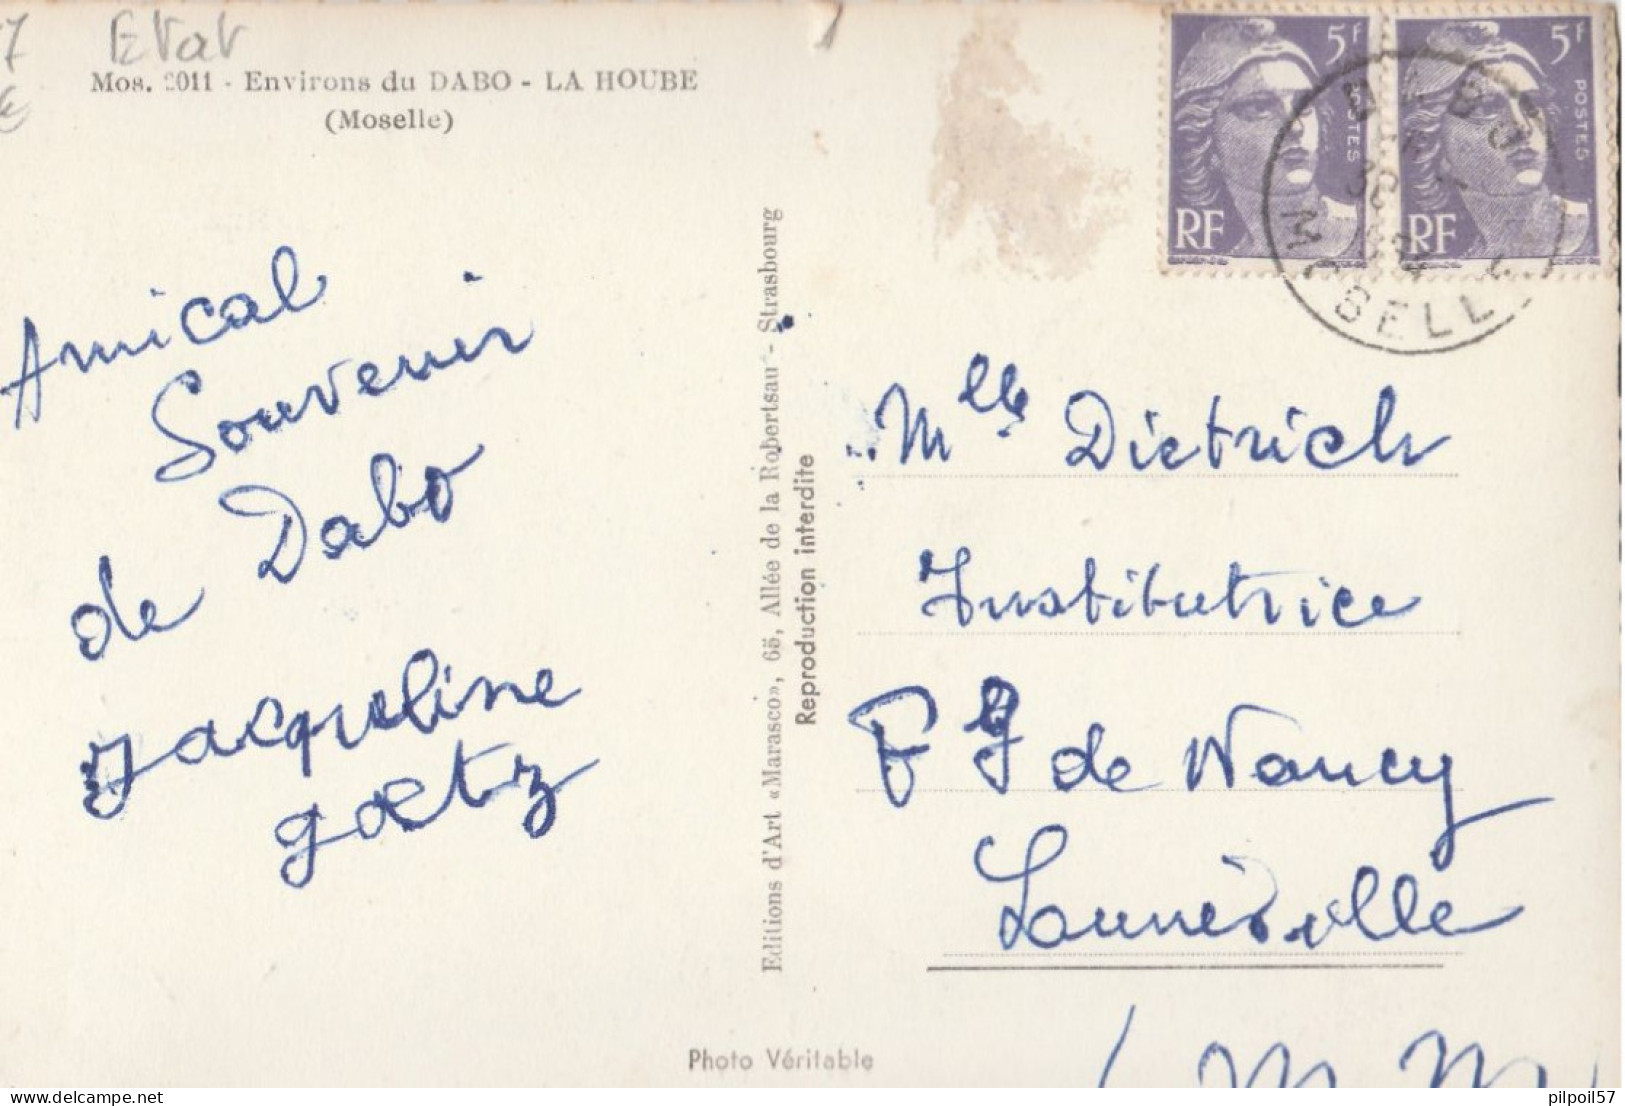 Etat
Mos. 2011 - Environs du DABO - LA HOUBE
(Moselle)
Amical
Souvenir
de Dabo
Jacqueline
Goetz
Editions d'Art «Marasco», 65, Allée de la Robertsau - Strasbourg
Reproduction interdite
Photo Véritable
5f
POSTES
RF
5f
POSTES
RF
DABO
MOSELLE
Mlle Dietrich
Institutrice
Fg de Nancy
Lunéville
(M M
pilpoil57